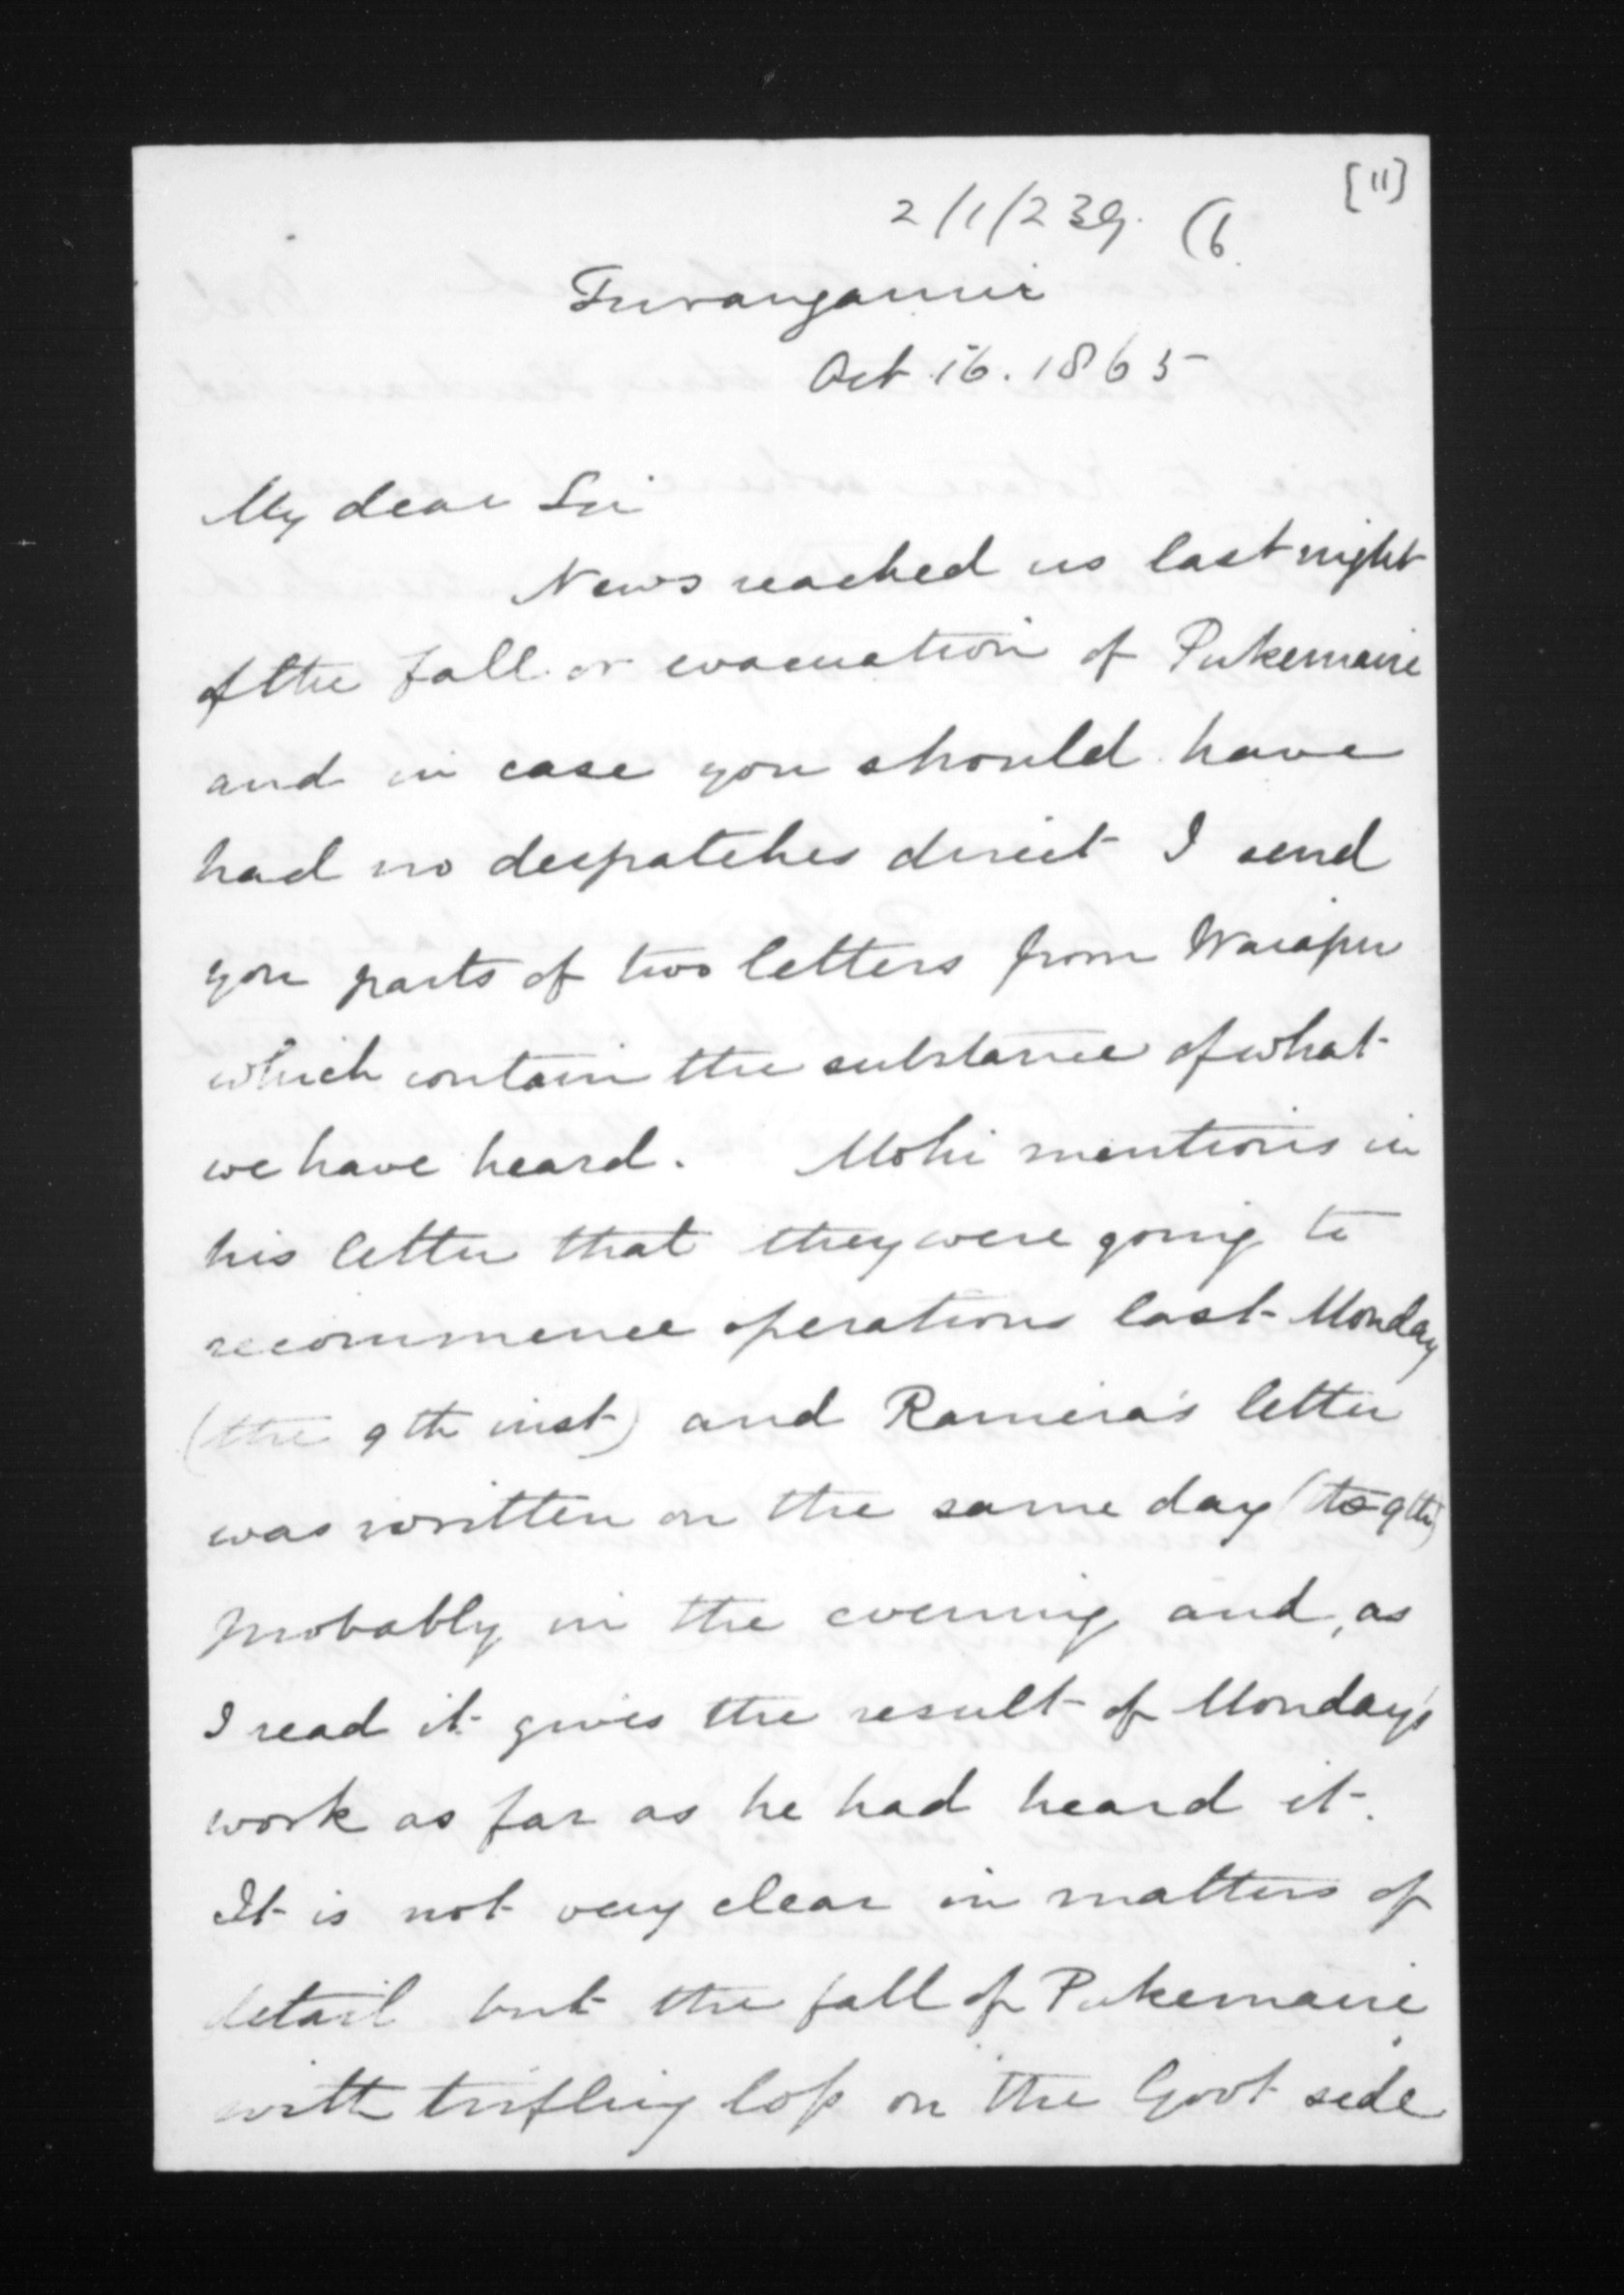 [11]
2/1/239. (6
Turanganui
Oct 16. 1865
My dear Sir
News reached us last night
of the fall or evacuation of Pukemaire
and in case you should have
had no despatches direct I send
you parts of two letters from Waiapu
which contain the substance of what
we have heard. Mohi mentions in
his letter that they were going to
recommence operations last Monday
(the 9th inst) and Rameira's letter
was written on the same day (the 9th)
probably in the evening and, as
I read it gives the result of Monday's
work as far as he had heard it.
It is not very clear in matters of
detail but the fall of Pukemaire
with trifling loss on the Govt side